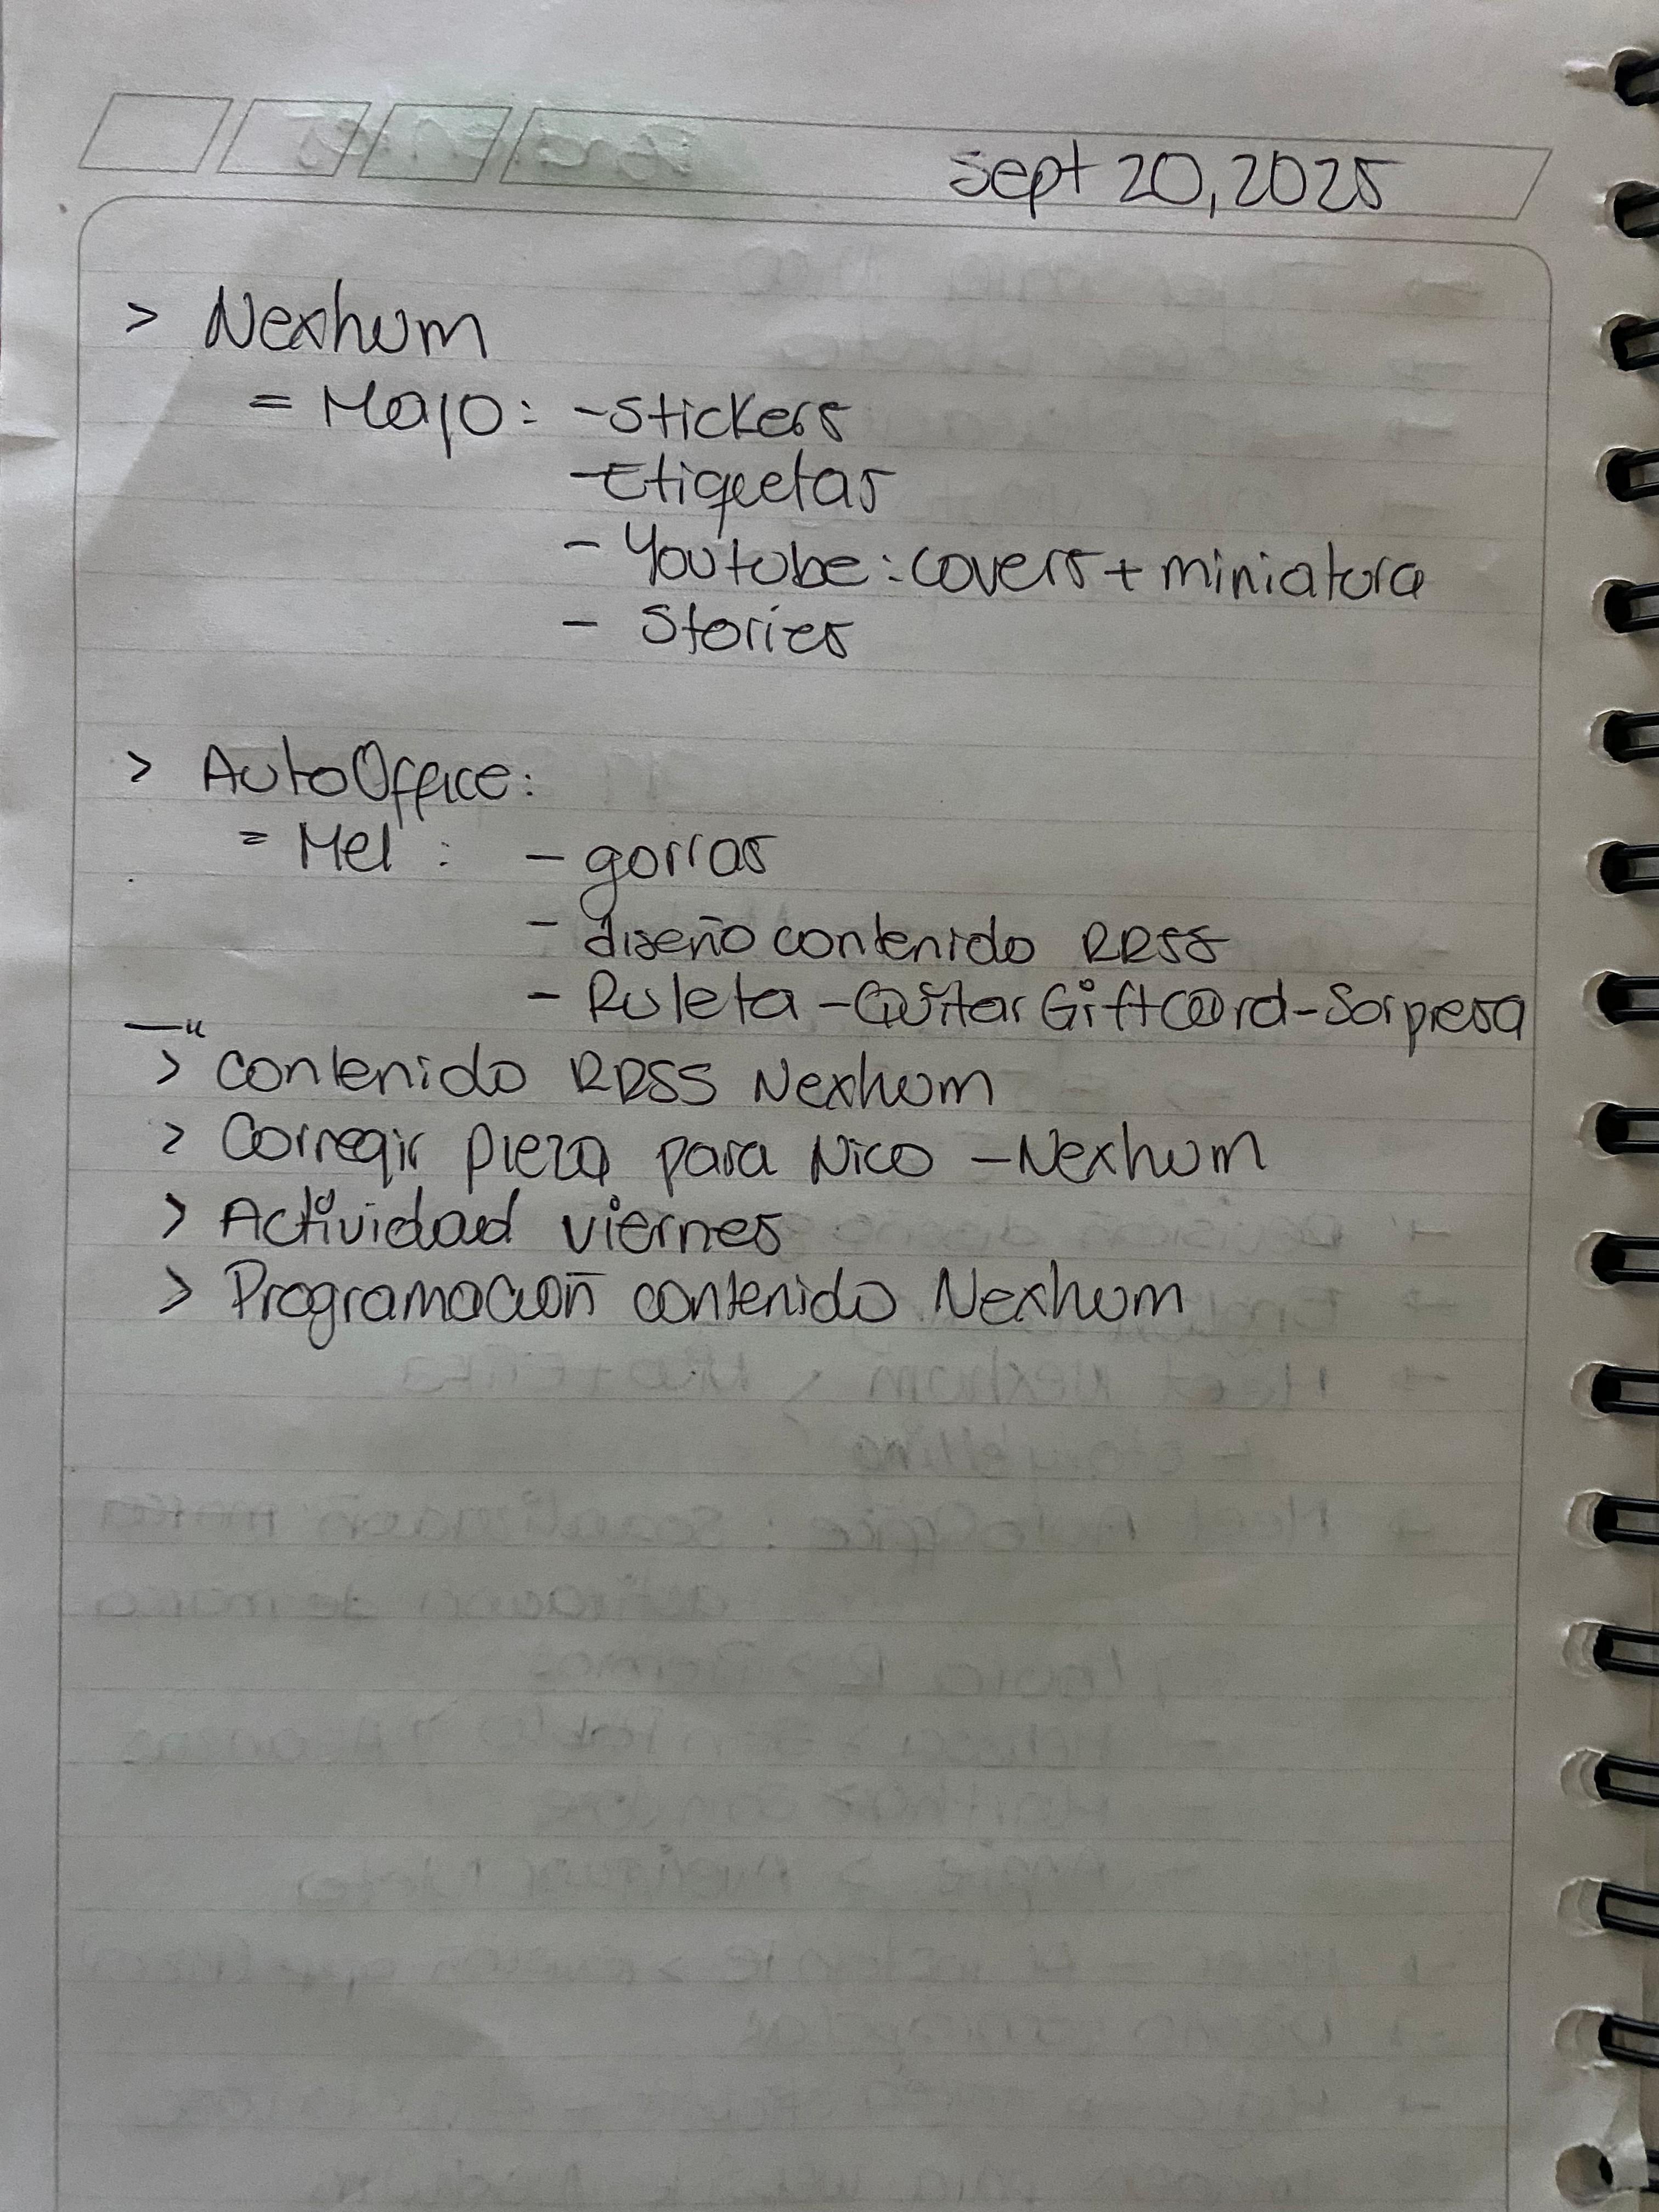 Sept 20, 2025
> Nexhum
= Majo: - Stickers
- Etiquetas
- Youtube: covers + miniatura
- Stories
> AutoOffice:
= Mel : - gorras
- diseño contenido RRSS
- Ruleta - Quitar Giftcard - Sorpresa
> contenido RRSS Nexhum
> Corregir pieza para Nico - Nexhum
> Actividad viernes
> Programación contenido Nexhum